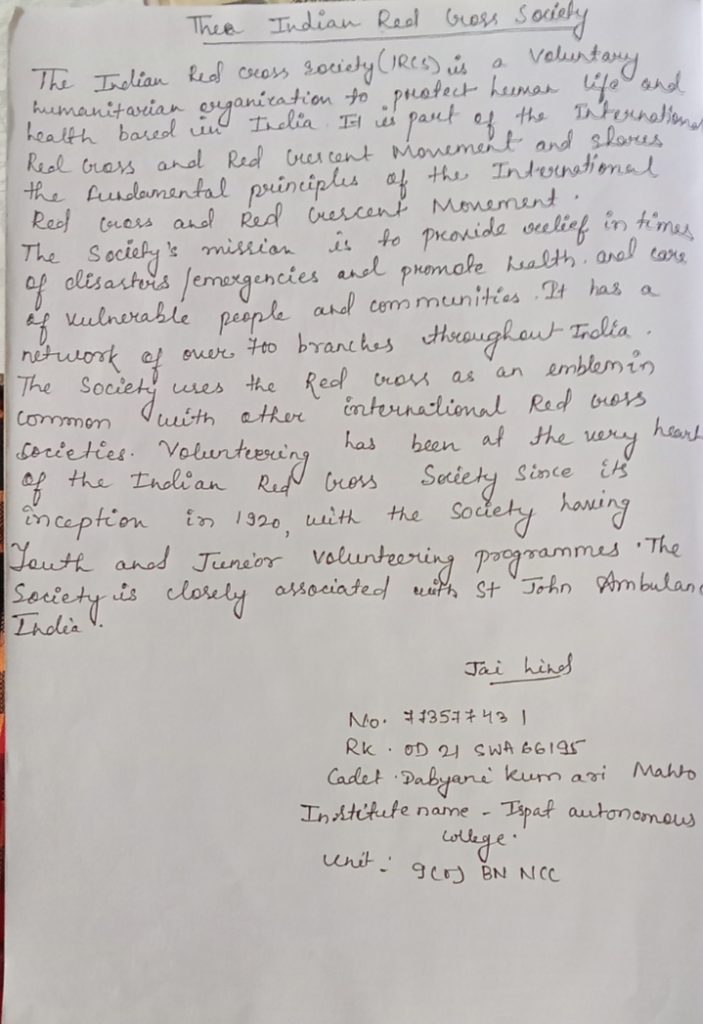 Thee Indian Red Cross Society
The Indian Red cross society (IRCS) is a Voluntary
humanitarian organization to protect human life and
health based in India. It is part of the International
Red Cross and Red Crescent Movement and shares
the fundamental principles of the International
Red Cross and Red Crescent Movement.
The Society's mission is to provide relief in times
of disasters/emergencies and promote health. and care
of vulnerable people and communities. It has a
network of over 700 branches throughout India.
The Society uses the Red cross as an emblem in
common with other international Red cross
societies. Volunteering has been at the very heart
of the Indian Red Cross Society Since its
inception in 1920, with the Society having
Youth and Junior Volunteering programmes. The
Society is closely associated with St John Ambulanc
India.
Jai hind
No. 773577431
RK. OD 21 SWA 66195
Cadet. Dabyani kumari Mahto
Institute name - Ispat autonomous
college.
Unit: 9(O) BN NCC